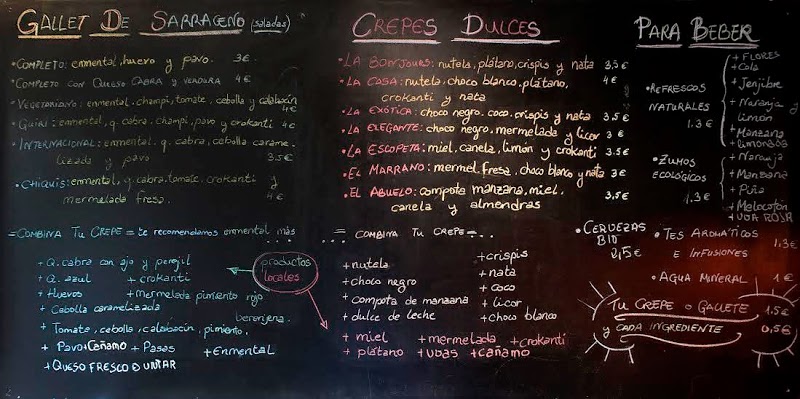 GALLET DE SARRACENO (saladas)
• COMPLETO: enmental, huevo y pavo. 3€
• COMPLETO CON QUESO CABRA Y VERDURA 4€
• VEGETARIANO: enmental, champi, tomate, cebolla y calabacin 4€
• GUIRI: enmental, q. cabra, champi, pavo y crokanti 4€
• INTERNACIONAL: enmental, q. cabra, cebolla carame-
lizada y pavo 3.5€
• CHIQUIS: enmental, q. cabra, tomate, crokanti y
mermelada fresa. 4€
= COMBINA TU CREPE = te recomendamos enmental más ...
+ Q. cabra con ajo y perejil
+ Q. azul + crokanti
+ Huevos + mermelada pimiento rojo
+ Cebolla caramelizada berenjena.
+ Tomate, cebolla, calabacín, pimiento,
+ Pavo + Cañamo + Pasas + Enmental
+ QUESO FRESCO D UNTAR
productos
locales
CREPES DULCES
• LA BONJOURS: nutela, plátano, crispis y nata 3.5€
• LA CASA: nutela, choco blanco, plátano, 4€
crokanti y nata
• LA EXÓTICA: choco negro, coco, crispis y nata 3.5€
• LA ELEGANTE: choco negro, mermelada y licor 3€
• LA ESCOPETA: miel, canela, limón y crokanti 3.5€
• EL MARRANO: mermel. fresa, choco blanco y nata 3€
EL ABUELO: compota manzana, miel, 3,5€
canela y almendras
= COMBINA TU CREPE = ...
+ nutela + crispis
+ choco negro + nata
+ compota de manzana + coco
+ dulce de leche + licor
+ choco blanco
+ miel + mermelada + crokanti
+ plátano + uvas + cañamo
PARA BEBER
• REFRESCOS
NATURALES
1.3€
+ FLORES
+ Cola
+ Jenjibre
+ Naranja y
limón
+ Manzana
+ limonsos
• ZUMOS
ECOLÓGICOS
1.3€
+ Naranja
+ Manzana
+ Piña
+ Melocotón
+ UVA ROSA
• CERVEZAS
BIO
2,5€
• TES AROMÁTICOS
E INFUSIONES 1,3€
• AGUA MINERAL 1€
TU CREPE O GALLETE 1,5€
y CADA INGREDIENTE 0,5€